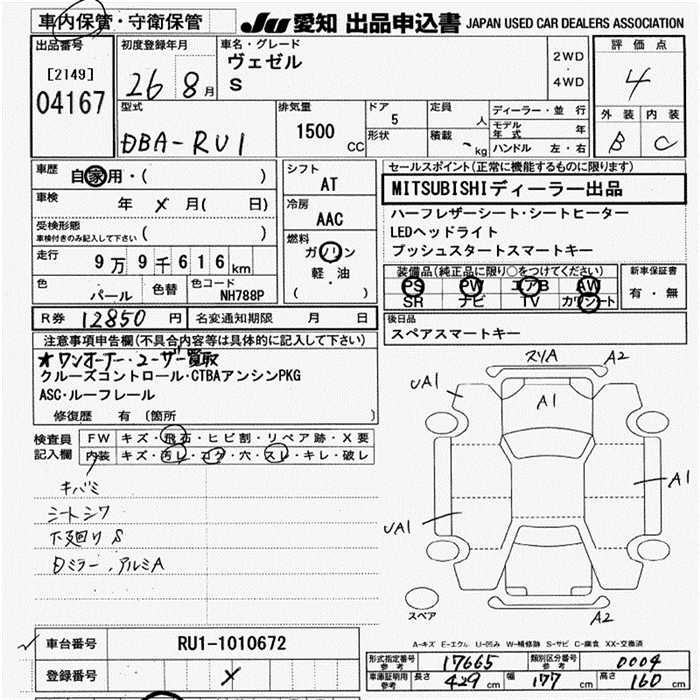 車内保管・守衛保管
JU 愛知 出品申込書 JAPAN USED CAR DEALERS ASSOCIATION
出品番号
[2149]
04167
初度登録年月
26 8月
車名・グレード
ヴェゼル
S
2WD
・
4WD
評価点
4
外装 内装
B C
型式
DBA-RU1
排気量
1500 CC
ドア
5
形状
定員
人
積載
kg
ディーラー・並行
モデル年式 年
ハンドル 左・右
車歴
自家用・( )
車検
年 × 月( 日)
受検形態
車検付きのみ記入して下さい ( )
走行
9万9千616km
色
パール
色替
色コード
NH788P
シフト
AT
冷房
AAC
燃料
ガソリン
軽・油
( )
セールスポイント(正常に機能するものに限ります)
MITSUBISHIディーラー出品
ハーフレザーシート・シートヒーター
LEDヘッドライト
プッシュスタートスマートキー
装備品(純正品に限り○をつけてください)
PS PW エアB AW
SR ナビ TV カワシート
新車保証書
有・無
R券 12850円 名変通知期限 月 日
後日品
スペアスマートキー
注意事項申告欄(不具合内容等は具体的に記入して下さい)
★ワンオーナー・ユーザー買取
クルーズコントロール・CTBAアンシンPKG
ASC・ルーフレール
修復歴 有 〔箇所 〕
検査員記入欄
FW キズ・飛石・ヒビ割・リペア跡・X要
内装 キズ・汚レ・コゲ・穴・スレ・キレ・破レ
キバミ
シートシワ
下廻りS
Dミラー、アルミA
スリA A2
UA1
A1
A1
UA1
スペア
A2
A-キズ E-エクボ U-凹み W-補修跡 S-サビ C-腐食 XX-交換済
車台番号 RU1-1010672
登録番号 ×
形式指定番号参考 17665 類別区分番号参考 0004
車庫証明用参考 長さ 429cm 幅 177cm 高さ 160cm